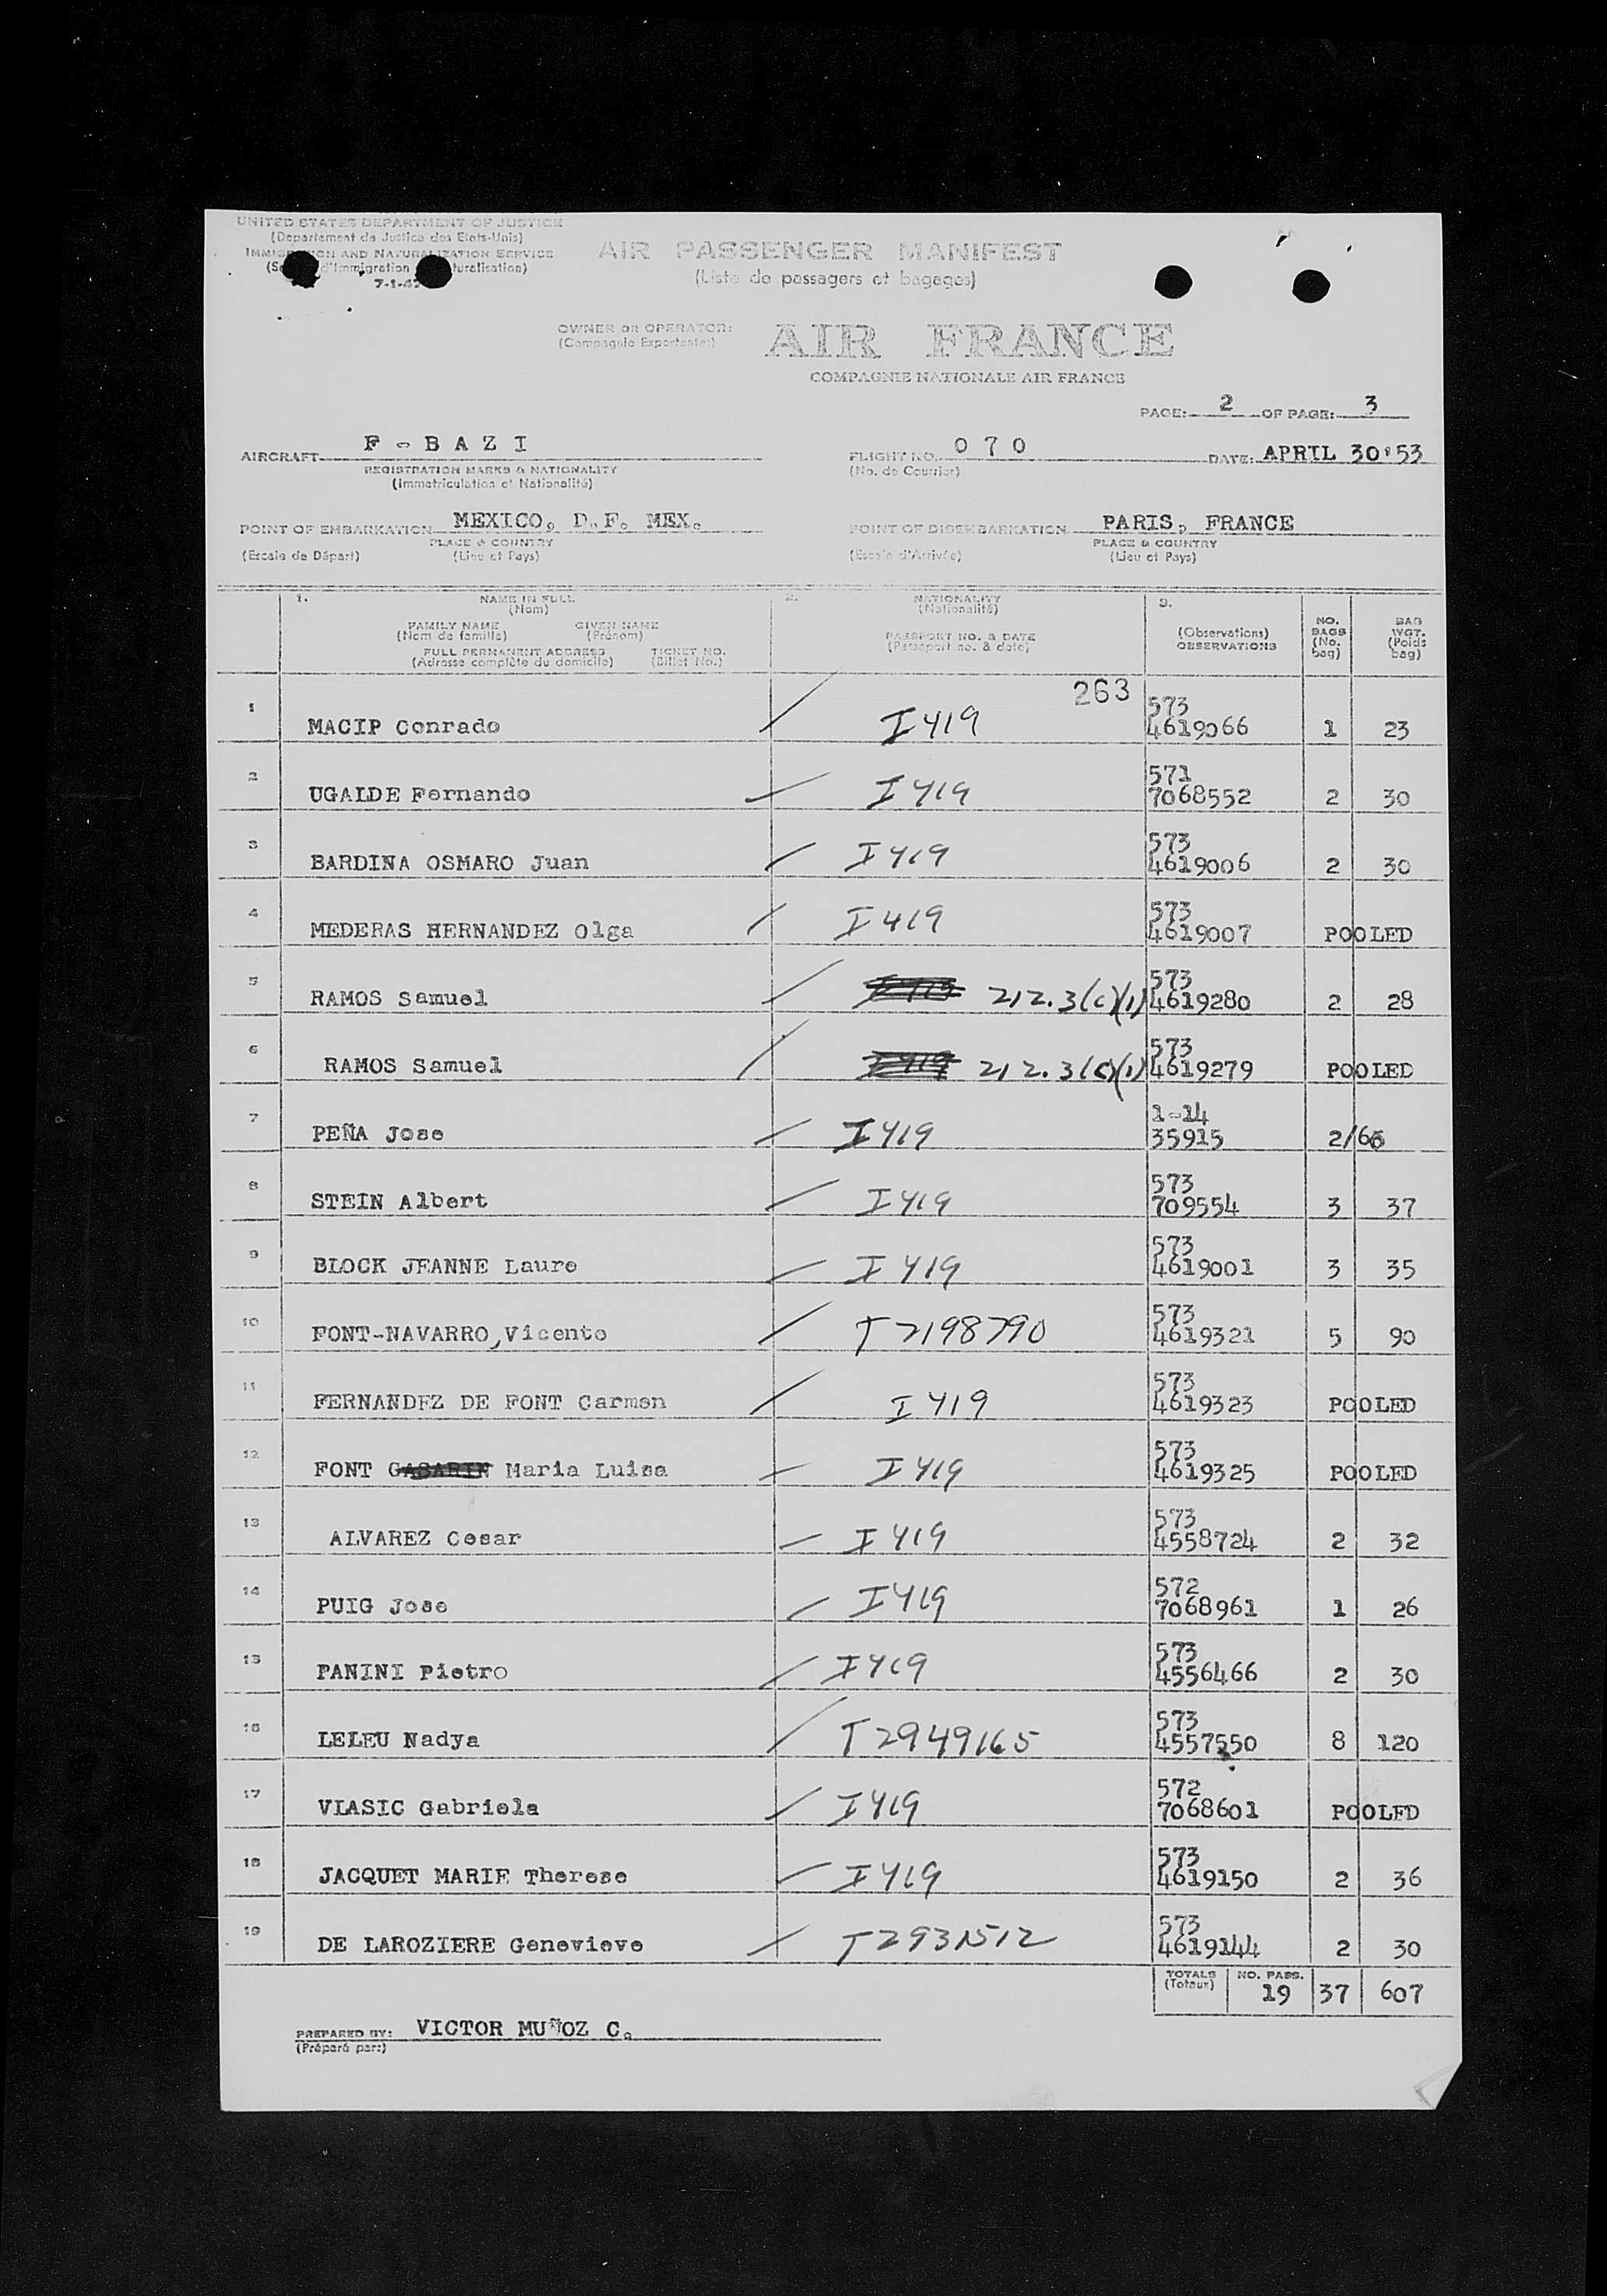 UNITED STATES DEPARTMENT OF JUSTICE
(Departement de Justice des Etats-Unis)
IMMIGRATION AND NATURALIZATION SERVICE
d'Immigration
7-1-4
AIR PASSENGER MANIFEST
(Liste de passagers et bagages)
OWNER OR OPERATOR:
(Compagnie Exportante:)
AIR FRANCE
COMPAGNIE NATIONALE AIR FRANCE
PAGE: 2 OF PAGE: 3
AIRCRAFT F - B A Z I
REGISTRATION MARKS & NATIONALITY
(Immatriculation et Nationalité)
FLIGHT NO. 0 7 0
(No. de Courrier)
DATE: APRIL 30'53
POINT OF EMBARKATION MEXICO, D.F. MEX.
PLACE & COUNTRY
(Escale de Départ) (Lieu et Pays)
POINT OF DISEMBARKATION PARIS, FRANCE
PLACE & COUNTRY
(Escale d'Arrivée) (Lieu et Pays)
1. NAME IN FULL
(Nom)
FAMILY NAME GIVEN NAME
(Nom de famille) (Prénom)
FULL PERMANENT ADDRESS TICKET NO.
(Adresse complète du domicile) (Billet No.)
2. NATIONALITY
(Nationalité)
PASSPORT NO. & DATE
(Passeport no. & date)
3.
(Observations)
OBSERVATIONS
NO. BAGS (No. bag)
BAG WGT. (Poids bag)
263
1 MACIP Conrado I 419 573 4619066 1 23
2 UGALDE Fernando I 419 571 7068552 2 30
3 BARDINA OSMARO Juan I 419 573 4619006 2 30
4 MEDERAS HERNANDEZ Olga I 419 573 4619007 POOLED
5 RAMOS Samuel 212.3(c)(1) 573 4619280 2 28
6 RAMOS Samuel 212.3(c)(1) 573 4619279 POOLED
7 PEÑA Jose I 419 1-14 35915 2/66
8 STEIN Albert I 419 573 709554 3 37
9 BLOCK JEANNE Laure I 419 573 4619001 3 35
10 FONT-NAVARRO, Vicente T 2198790 573 4619321 5 90
11 FERNANDEZ DE FONT Carmen I 419 573 4619323 POOLED
12 FONT GASARIN Maria Luisa I 419 573 4619325 POOLED
13 ALVAREZ Cesar I 419 573 4558724 2 32
14 PUIG Jose I 419 572 7068961 1 26
15 PANINI Pietro I 419 573 4556466 2 30
16 LELEU Nadya T 2949165 573 4557550 8 120
17 VLASIC Gabriela I 419 572 7068601 POOLED
18 JACQUET MARIE Therese I 419 573 4619150 2 36
19 DE LAROZIERE Genevieve T 2931512 573 4619144 2 30
TOTALS (Totaux) NO. PASS. 19 37 607
PREPARED BY: VICTOR MUÑOZ C.
(Préparé par:)